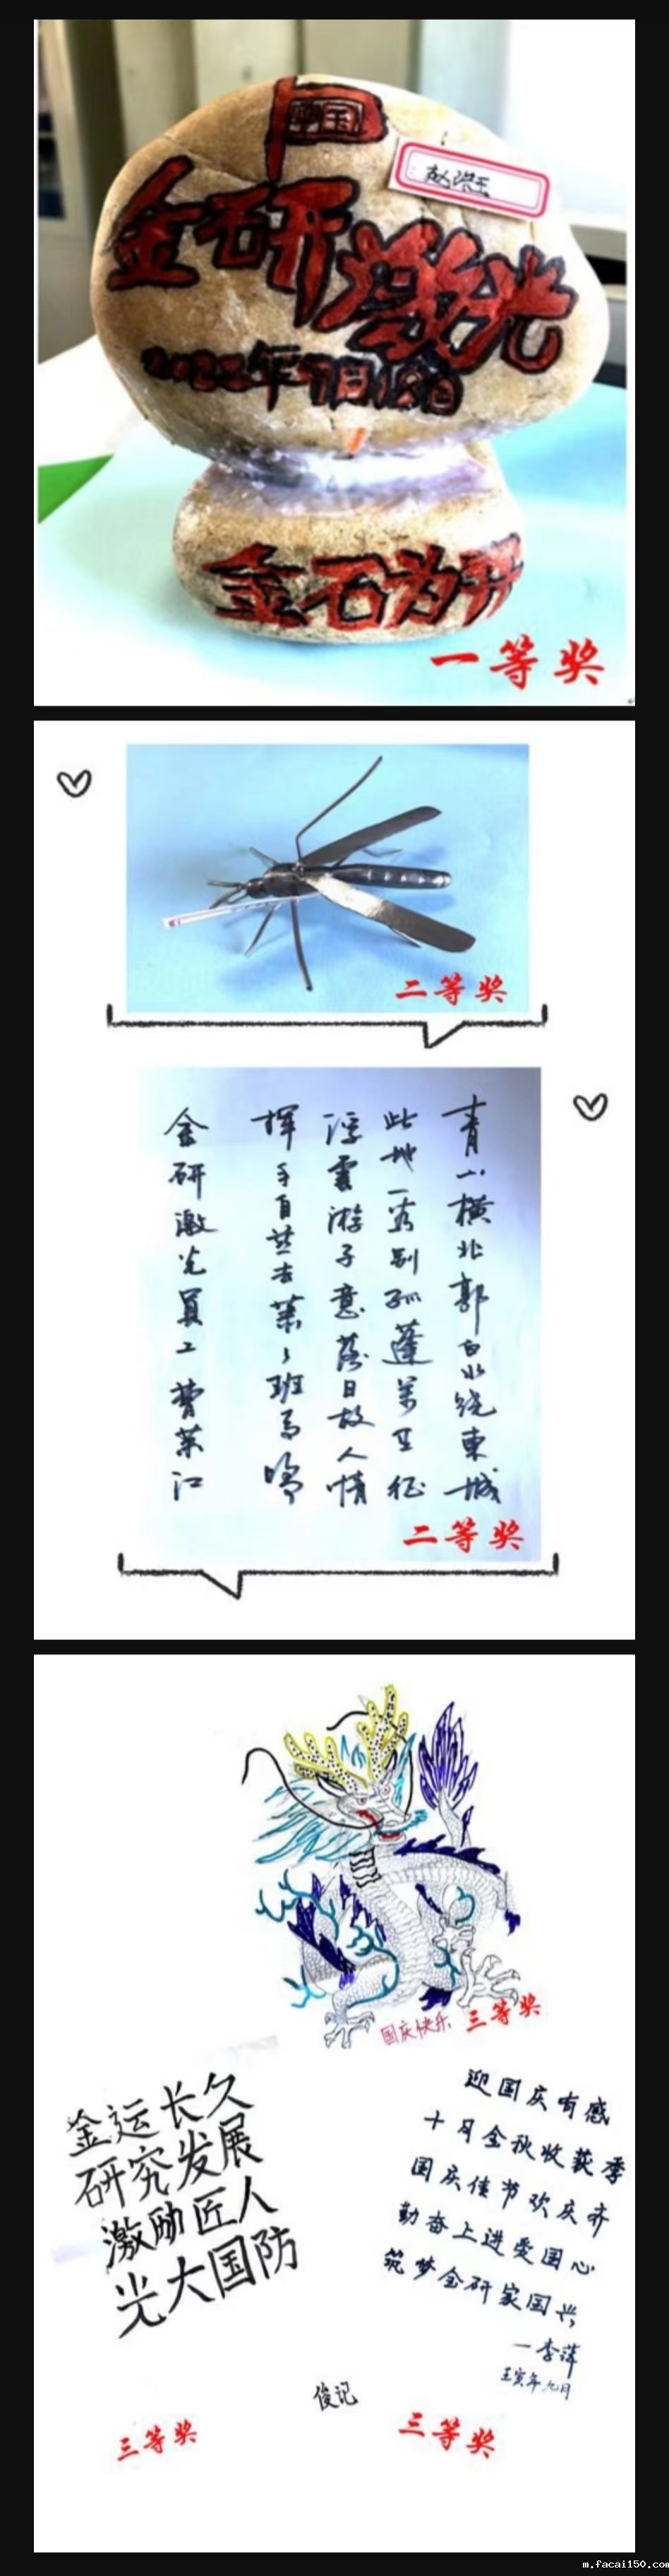 中国
赵洪玉
金石研激光
2022年9月18日
金石为开
一等奖
二等奖
青山横北郭白水绕東城
此地一為别孤蓬萬里征
浮雲游子意落日故人情
挥手自兹去萧々班马鸣
金研激光員工曹荣江
二等奖
国庆快乐
三等奖
金运长久
研究发展
激励匠人
光大国防
俊记
三等奖
迎国庆有感
十月金秋收获季
国庆佳节欢庆齐
勤奋上进爱国心
筑梦金研家国兴
一李萍
壬寅年九月
三等奖
m.facai150.com